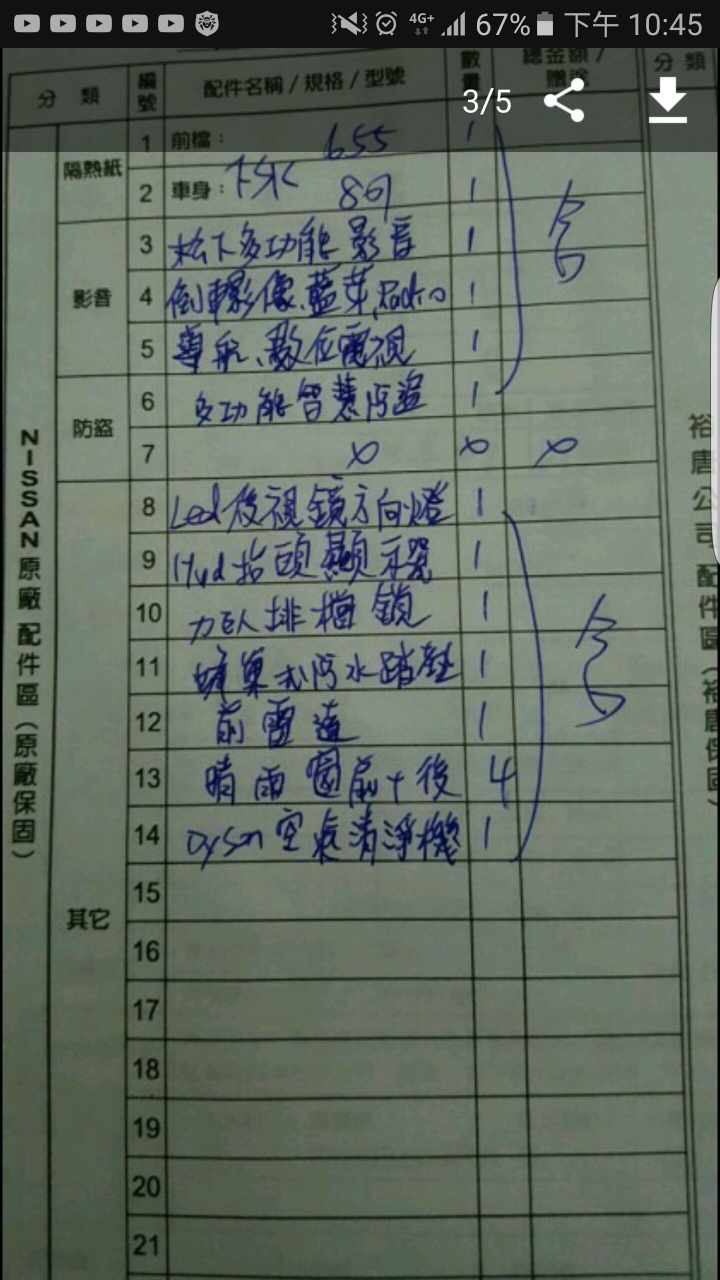 67% 下午 10:45
4G+
分 類 編號 配件名稱/規格/型號 數量 總金額/贈送 分 類
3/5
隔熱紙
1 前檔: 655 1
2 車身: FSK 869 1
影音
3 松下多功能影音 1
4 倒車影像、藍芽、Radio 1
5 導航、數位電視 1
防盜
6 多功能智慧防盜 1
7 x x x
其它
8 Led後視鏡方向燈 1
9 Hud抬頭顯示器 1
10 力巨人排檔鎖 1
11 蜂巢式防水踏墊 1
12 前雷達 1
13 晴雨窗前+後 4
14 Dyson空氣清淨機 1
15
16
17
18
19
20
21
NISSAN原廠配件區(原廠保固)
裕唐公司配件區(裕唐保固)